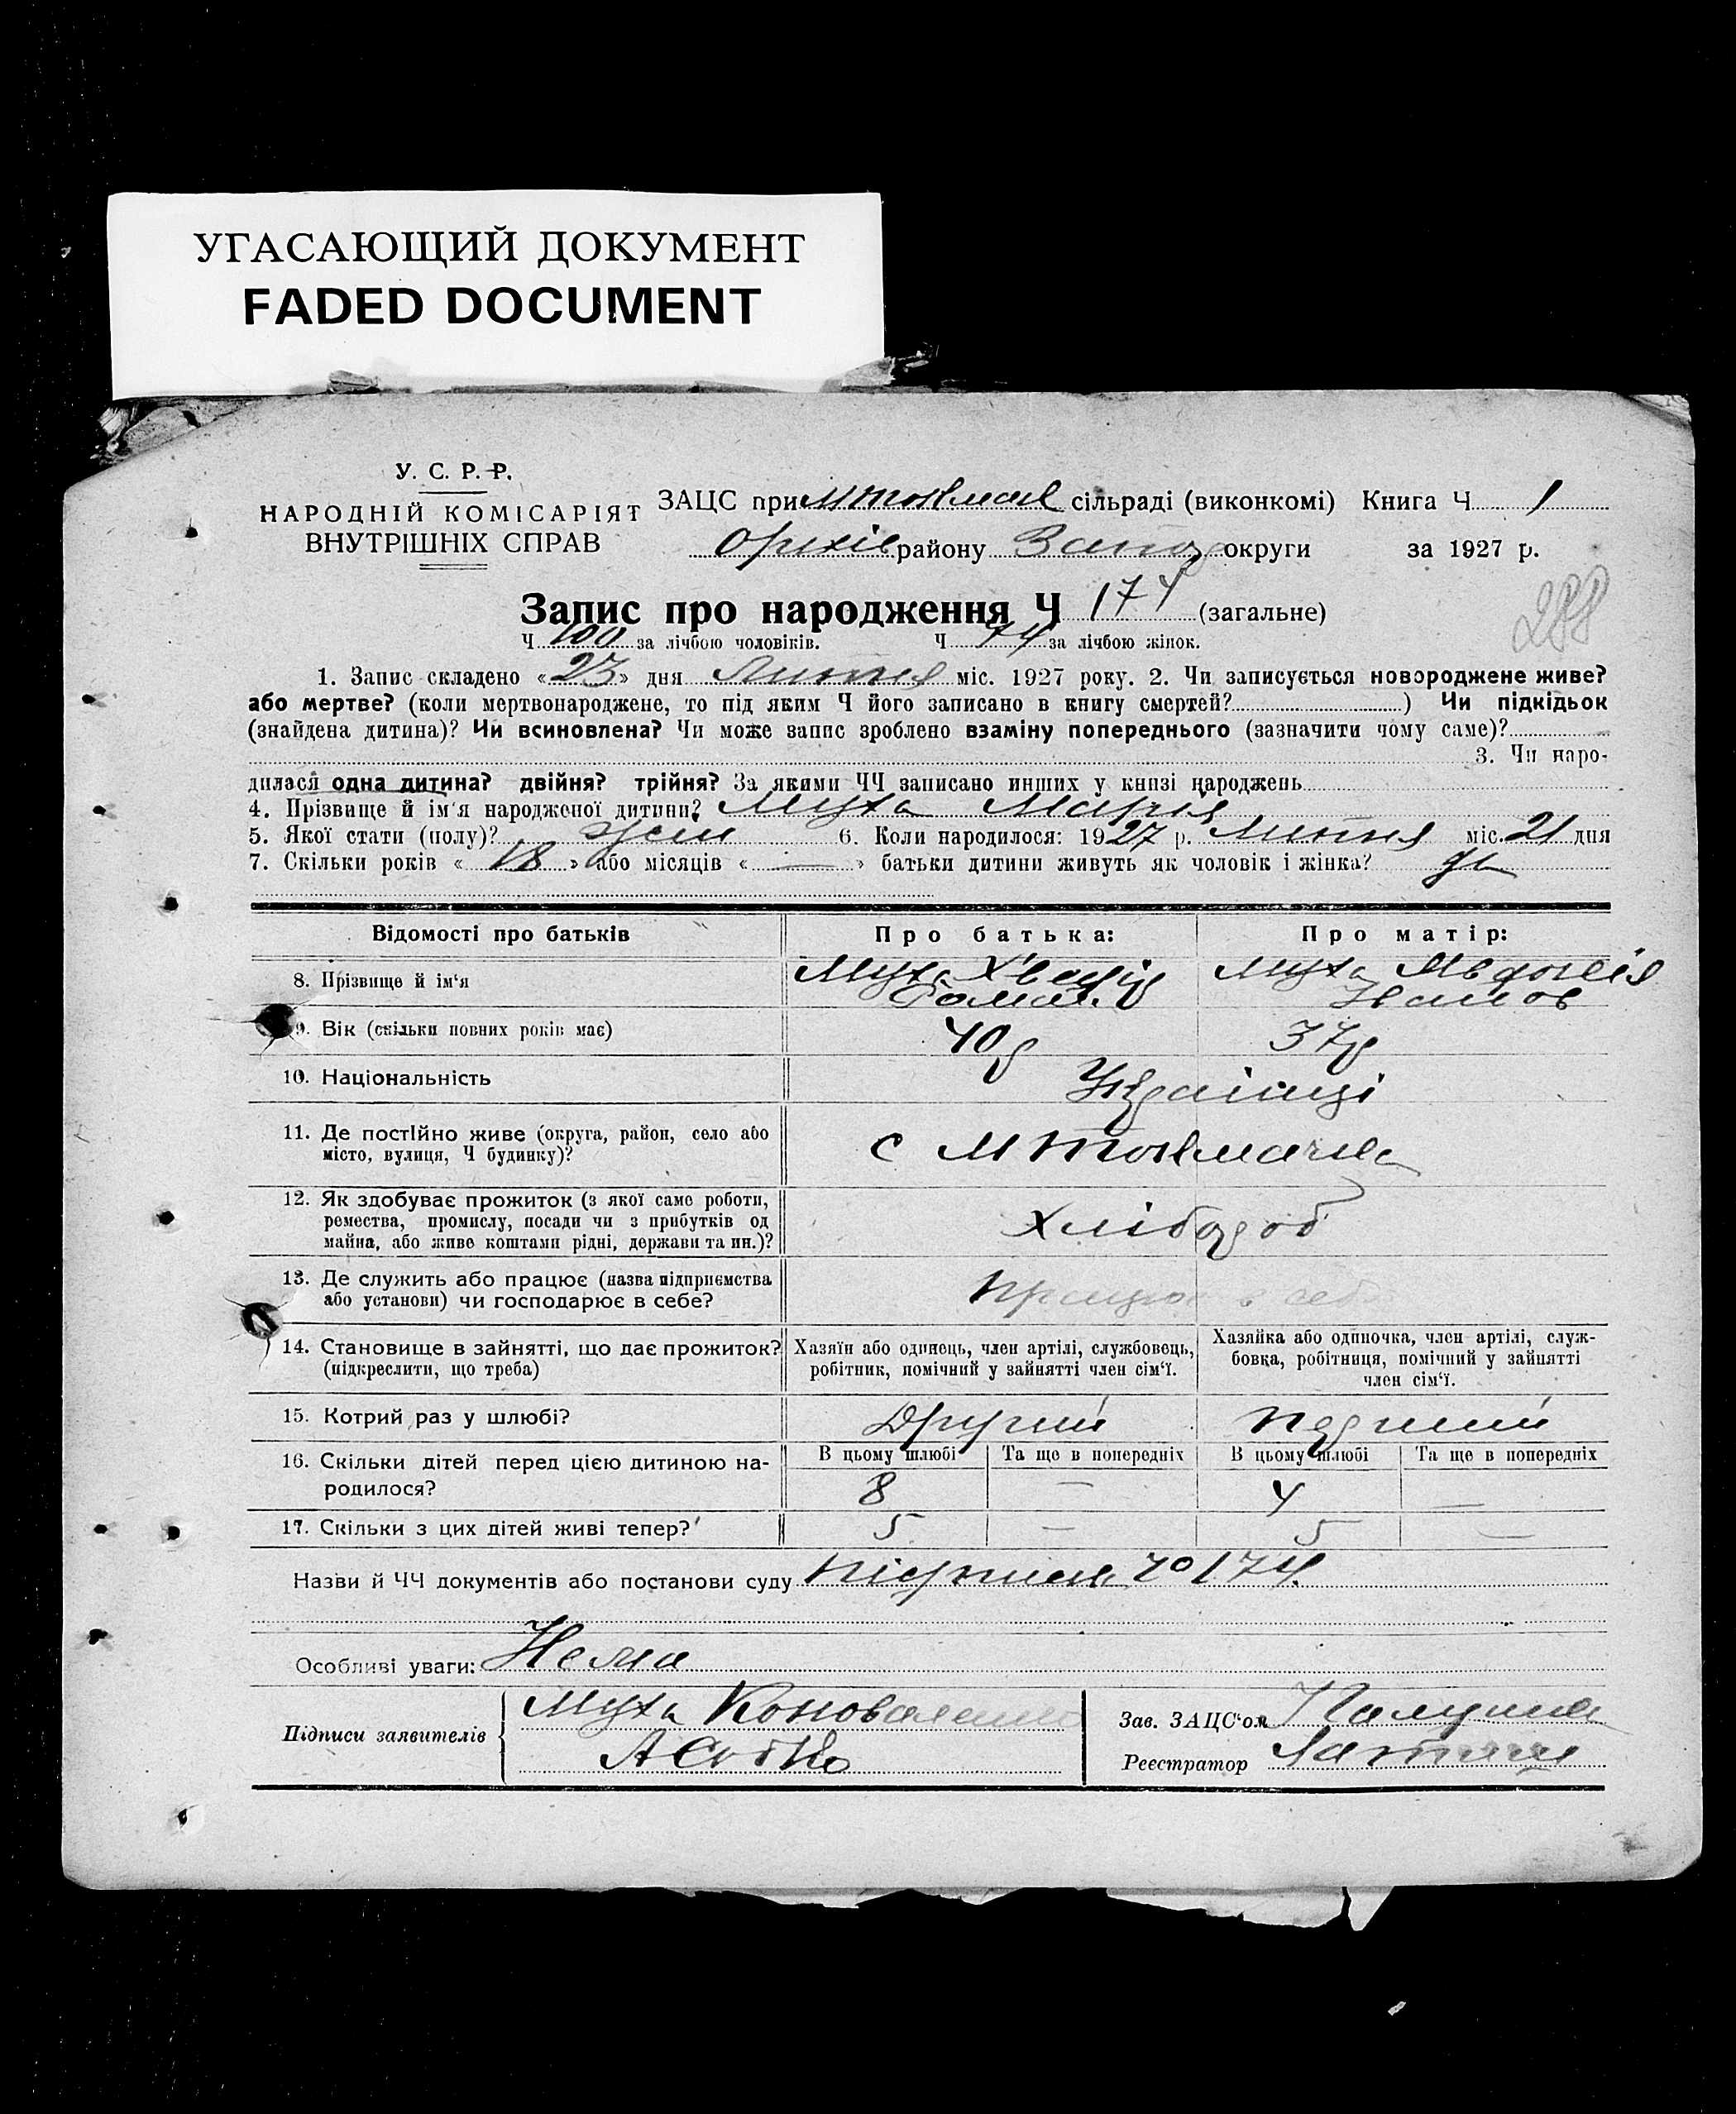 УГАСАЮЩИЙ ДОКУМЕНТ
FADED DOCUMENT
У. С. Р. Р.
НАРОДНІЙ КОМІСАРІЯТ
ВНУТРІШНІХ СПРАВ
ЗАЦС при сільраді (виконкомі) Книга Ч 1
Оріхів району Запоз округи за 1927 р.
288
Запис про народження Ч 174 (загальне)
Ч 100 за лічбою чоловіків. Ч 74 за лічбою жінок.
1. Запис складено «23» дня Липня міс. 1927 року. 2. Чи записується новороджене живе?
або мертве? (коли мертвонароджене, то під яким Ч його записано в книгу смертей?) Чи підкідьок
(знайдена дитина)? Чи всиновлена? Чи може запис зроблено взаміну попереднього (зазначити чому саме)?
3. Чи наро-
дилася одна дитина? двійня? трійня? За якими ЧЧ записано инших у книзі народжень
4. Прізвище й ім'я народженої дитини? Муха Марія
5. Якої стати (полу)? жен 6. Коли народилося: 1927 р. Липня міс. 21 дня
7. Скільки років «18» або місяців «—» батьки дитини живуть як чоловік і жінка? да
Відомості про батьків Про батька: Про матір:
8. Прізвище й ім'я Муха Муха Явдокія
Роман Иванов
9. Вік (скільки повних років має) 40 р 37 р
10. Національність Українці
11. Де постійно живе (округа, район, село або
місто, вулиця, Ч будинку)? с М Токмачка
12. Як здобуває прожиток (з якої саме роботи,
ремества, промислу, посади чи з прибутків од
майна, або живе коштами рідні, держави та ин.)? Хлібороб
13. Де служить або працює (назва підприємства
або установи) чи господарює в себе? Працює в себе
14. Становище в зайнятті, що дає прожиток?
(підкреслити, що треба)
Хазяїн або одинець, член артілі, службовець,
робітник, помічний у зайнятті член сім'ї.
Хазяйка або одиночка, член артілі, служ-
бовка, робітниця, помічний у зайнятті
член сім'ї.
15. Котрий раз у шлюбі? Другий Первший
16. Скільки дітей перед цією дитиною на-
родилося?
В цьому шлюбі Та ще в попередніх В цьому шлюбі Та ще в попередніх
8 — 4 —
17. Скільки з цих дітей живі тепер? 5 — 5 —
Назви й ЧЧ документів або постанови суду 174
Особливі уваги: Нема
Підписи заявителів Муха Коноваленко
Зав. ЗАЦС'ом
Реєстратор